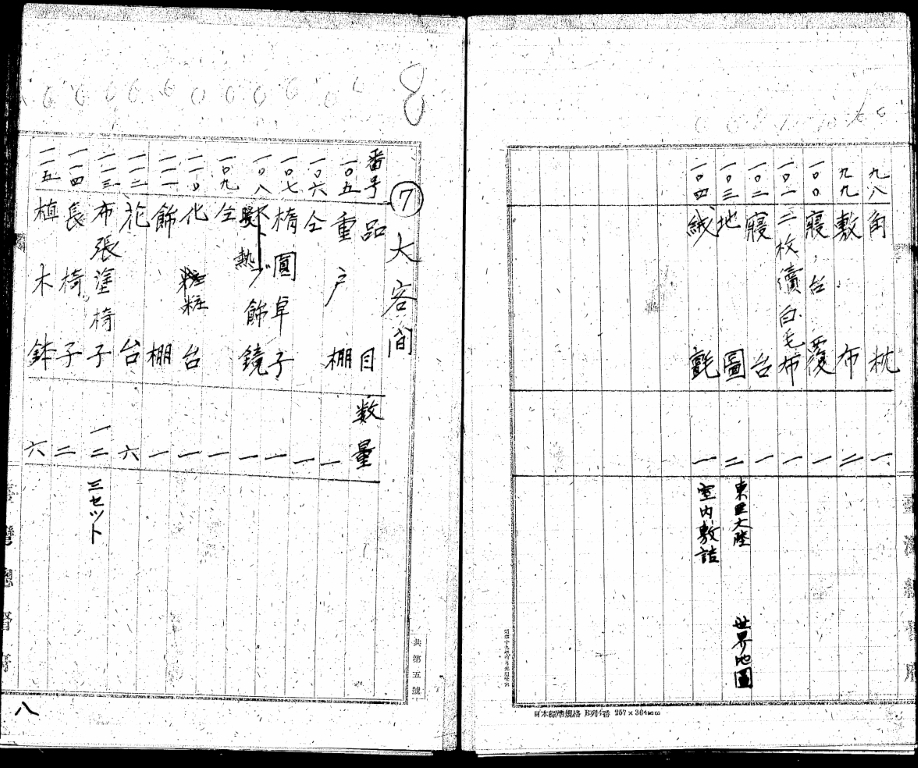 九八 角枕 一
九九 敷布 二
一〇〇 寝台覆 一
一〇一 二枚續白毛布 一
一〇二 寢台 一
一〇三 地圖 二 東亜大陸 世界地圖
一〇四 絨氈 一 室内敷詰
日本標準規格B列4番 257×364mm
8
⑦ 大客間
番号 品目 数量
一〇五 重戸棚 一
一〇六 仝 一
一〇七 楕圓卓子 一
一〇八 飾鏡 一
一〇九 仝 一
一一〇 化粧台 一
一一一 飾棚 一
一一二 花台 六
一一三 布張塗椅子 一二 三セット
一一四 長椅子 二
一一五 植木鉢 六
共第五號
八